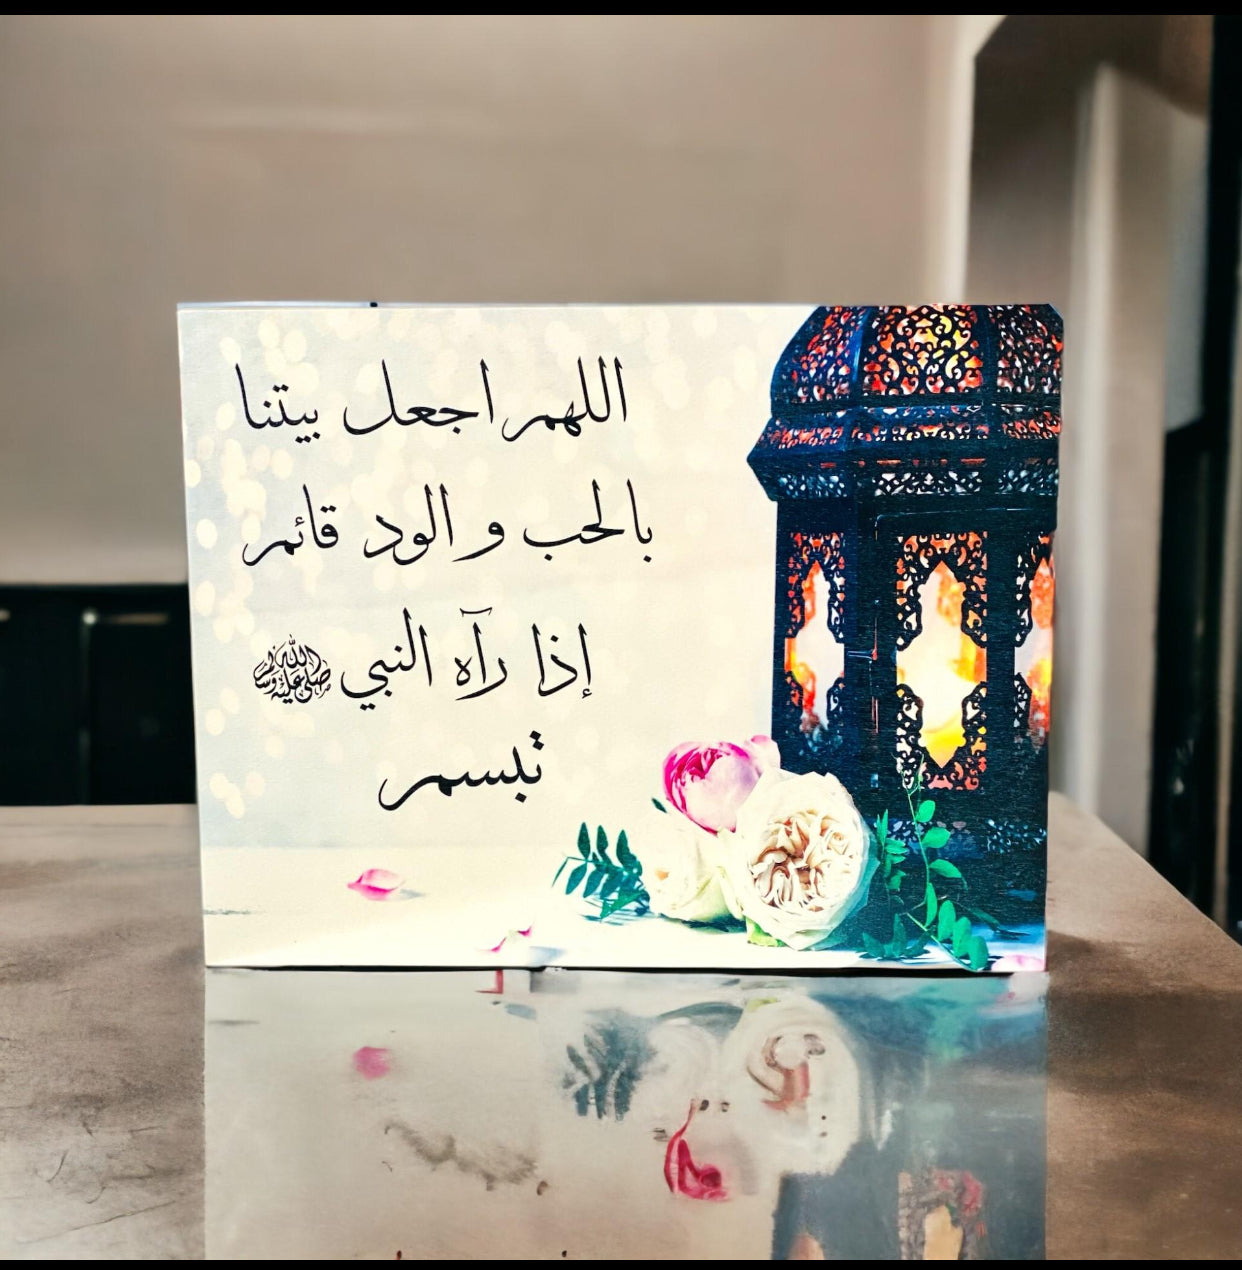 اللهم اجعل بيتنا
بالحب و الود قائم
إذا رآه النبي ﷺ
تبسم